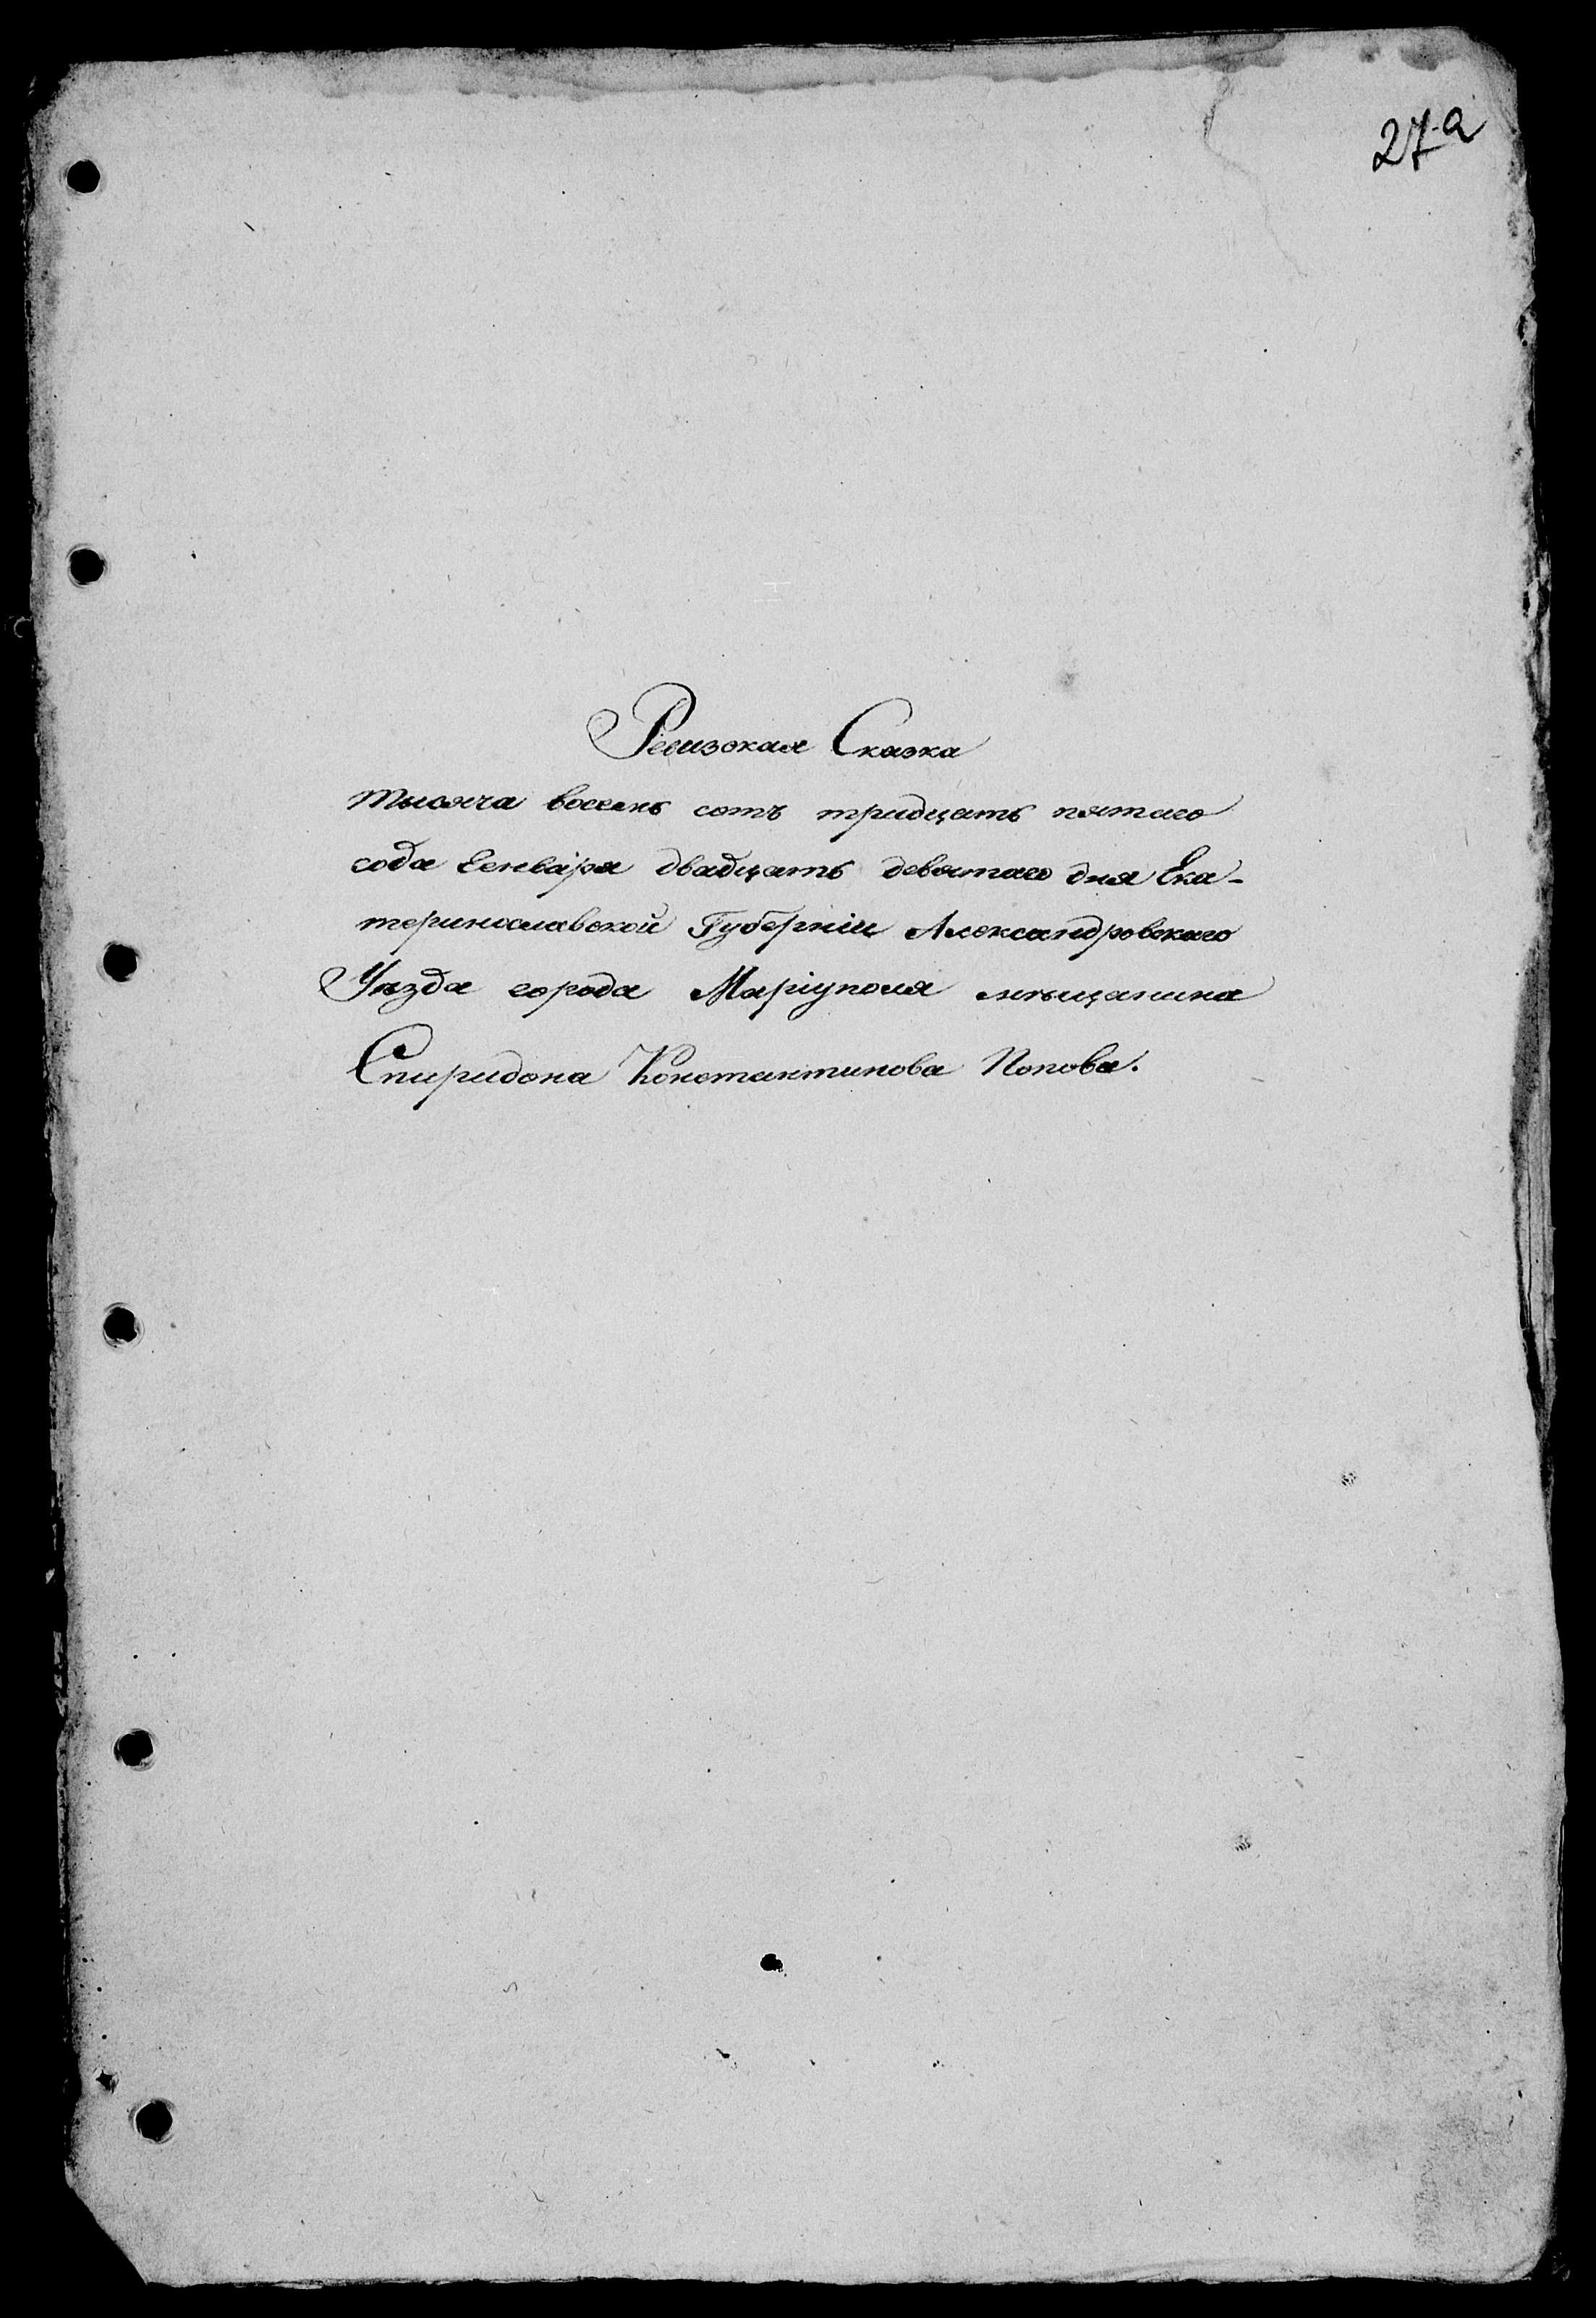 27-а
Ревизская Сказка
тысяча восемь сотъ тридцать пятаго
года Генваря двадцать девятаго дня Ека-
теринославской Губерніи Александровскаго
Уѣзда города Маріуполя мѣщанина
Спиридона Константинова Попова.